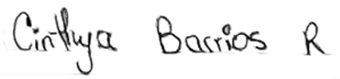 Cinthya Barrios R